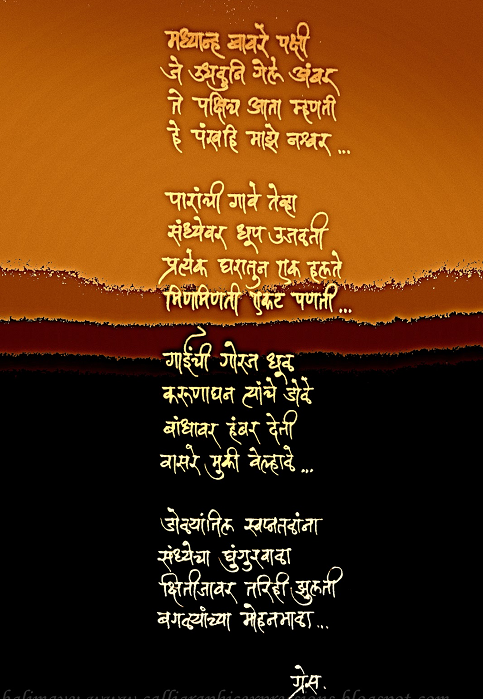 मध्यान्ह बावरे पक्षी
जे उधळुनि गेले अंबर
ते पक्षिच आता म्हणती
हे पंखहि माझे नश्वर...
पारांची गावे तेव्हा
संध्येवर धूप उजळती
प्रत्येक घरातुन एक हलते
मिणमिणती एकट पणती...
गाईंची गोरज धुळ
करूणाघन त्यांचे डोळे
बांधावर हंबर देती
वासरे मुकी वेल्हाळे...
डोळ्यांतिल स्वप्नतळांना
संध्येचा घुंगुरवाळा
क्षितीजावर तरिही झुलती
बगळ्यांच्या मोहनमाळा...
ग्रेस.